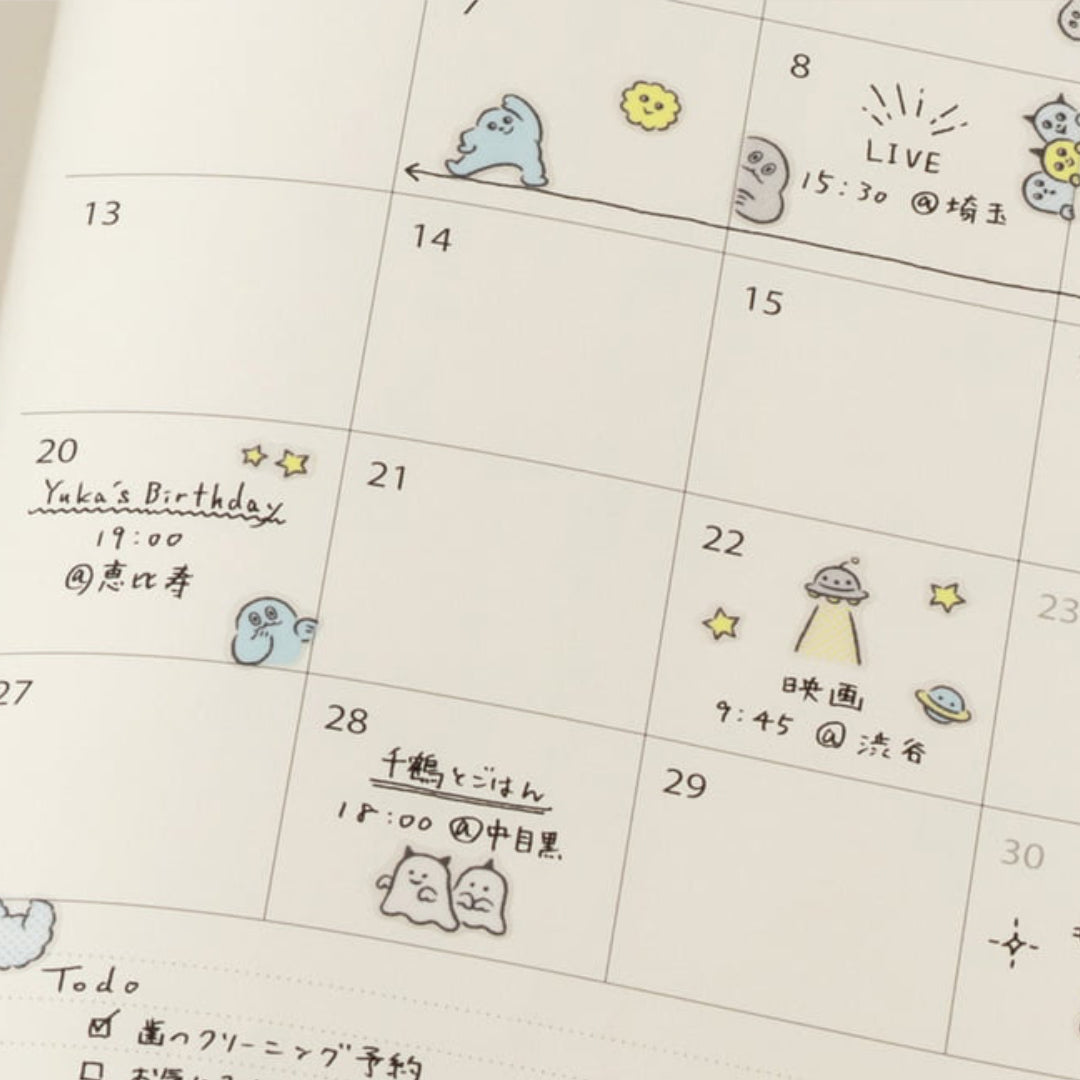 7
8
LIVE
15:30 @埼玉
13
14
15
20
Yuka's Birthday
19:00
@恵比寿
21
22
映画
9:45 @渋谷
23
27
28
千鶴とごはん
18:00 @中目黒
29
30
Todo
歯のクリーニング予約